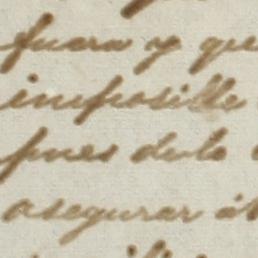 fuera y que
imposible
pues dolo
asegurar át